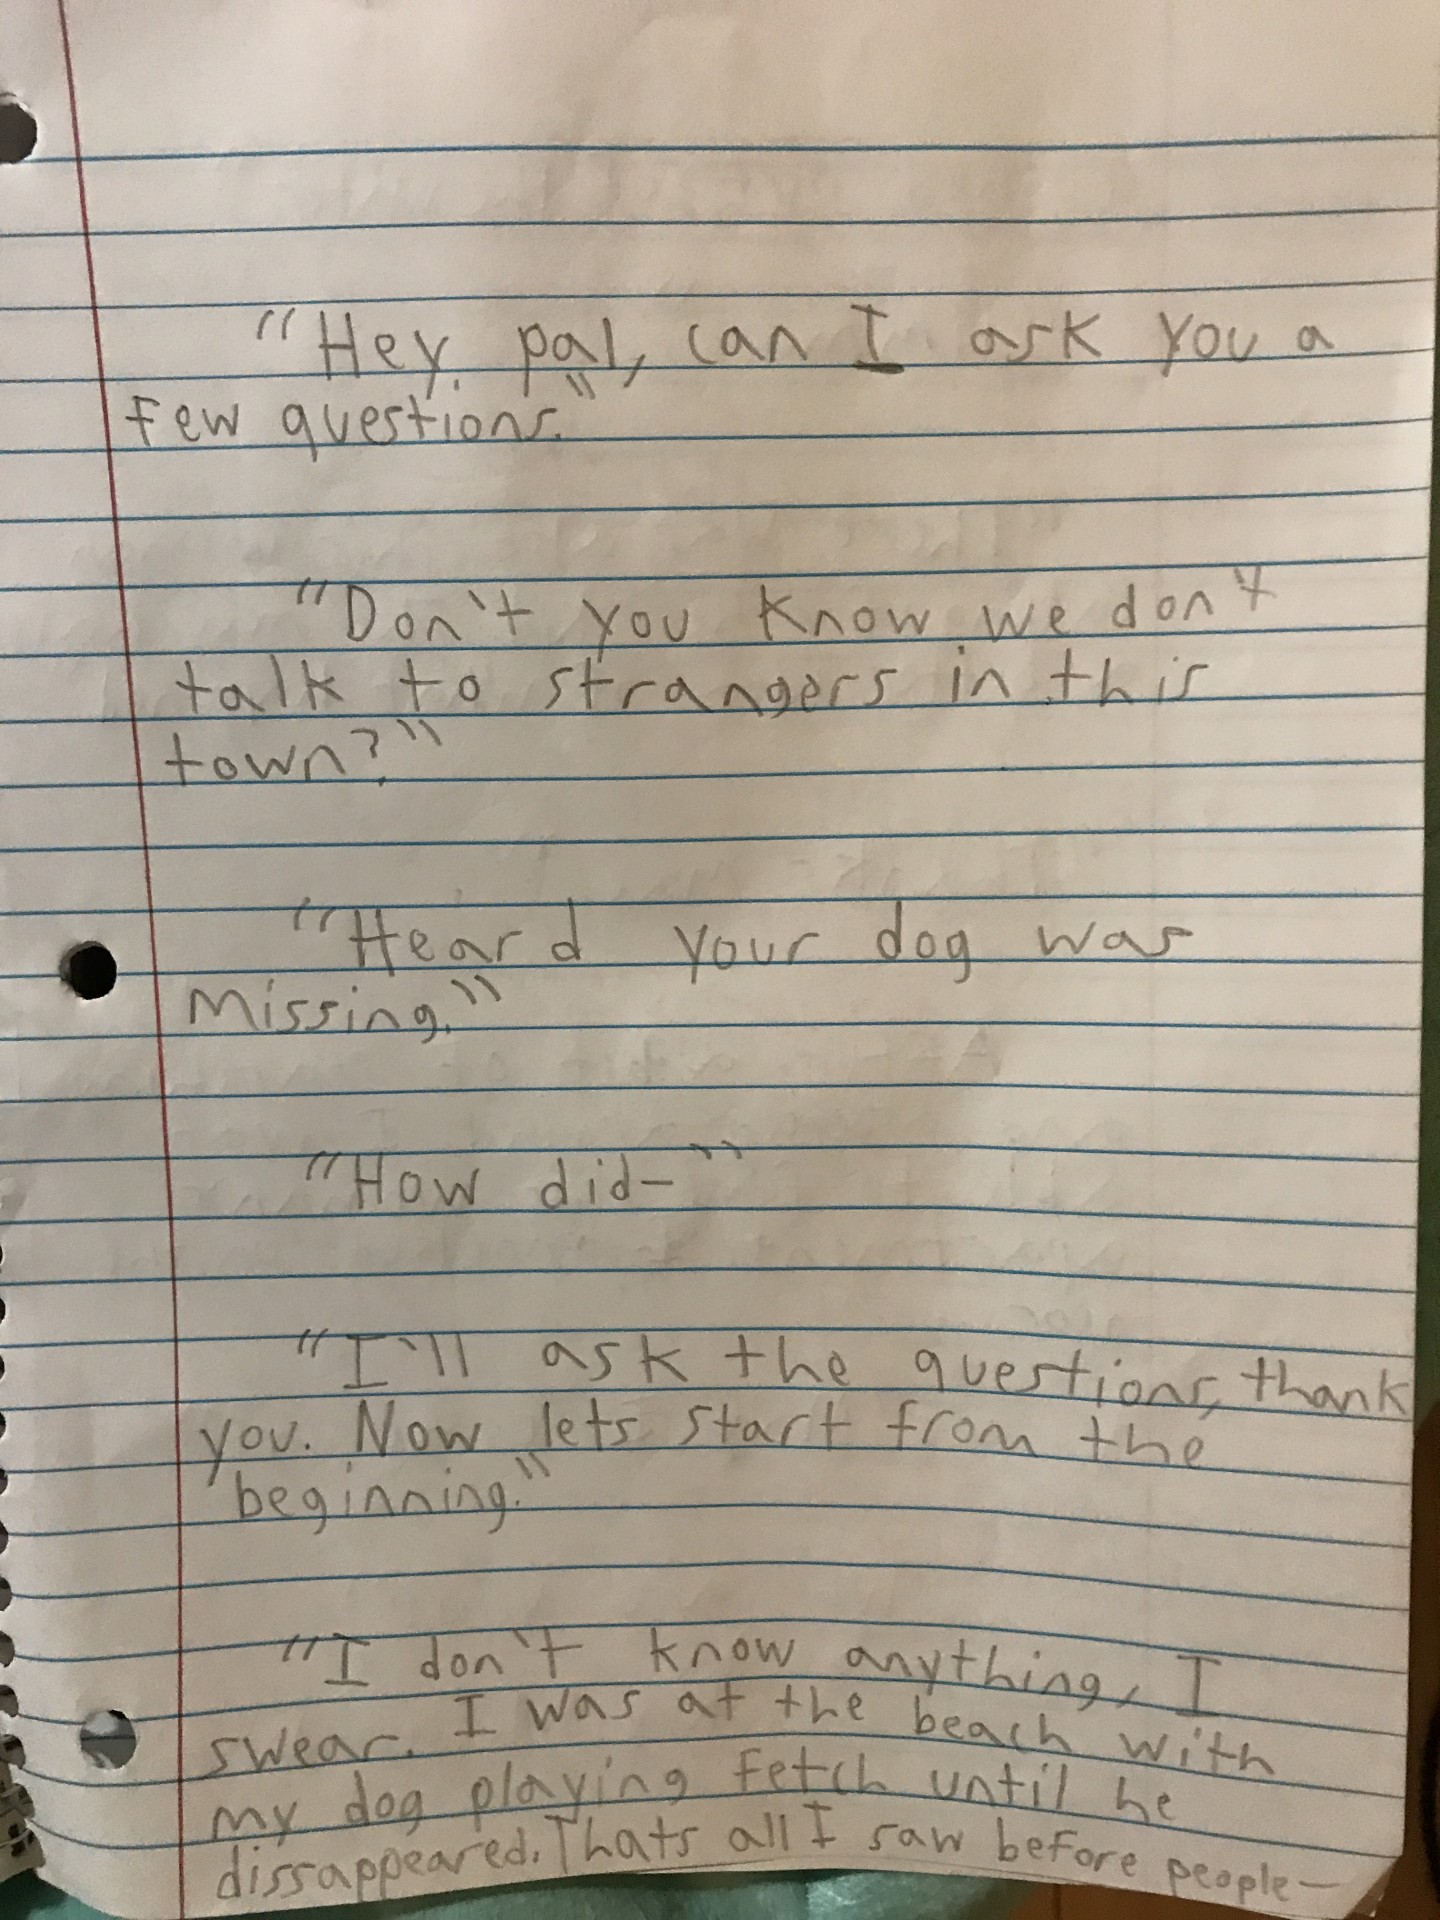 "Hey, pal, can I ask you a
few questions."
"Don't you know we don't
talk to strangers in this
town?"
"Heard your dog was
missing."
"How did-"
"I'll ask the questions, thank
you. Now lets start from the
beginning."
"I don't know anything, I
swear. I was at the beach with
my dog playing fetch until he
dissappeared. Thats all I saw before people-